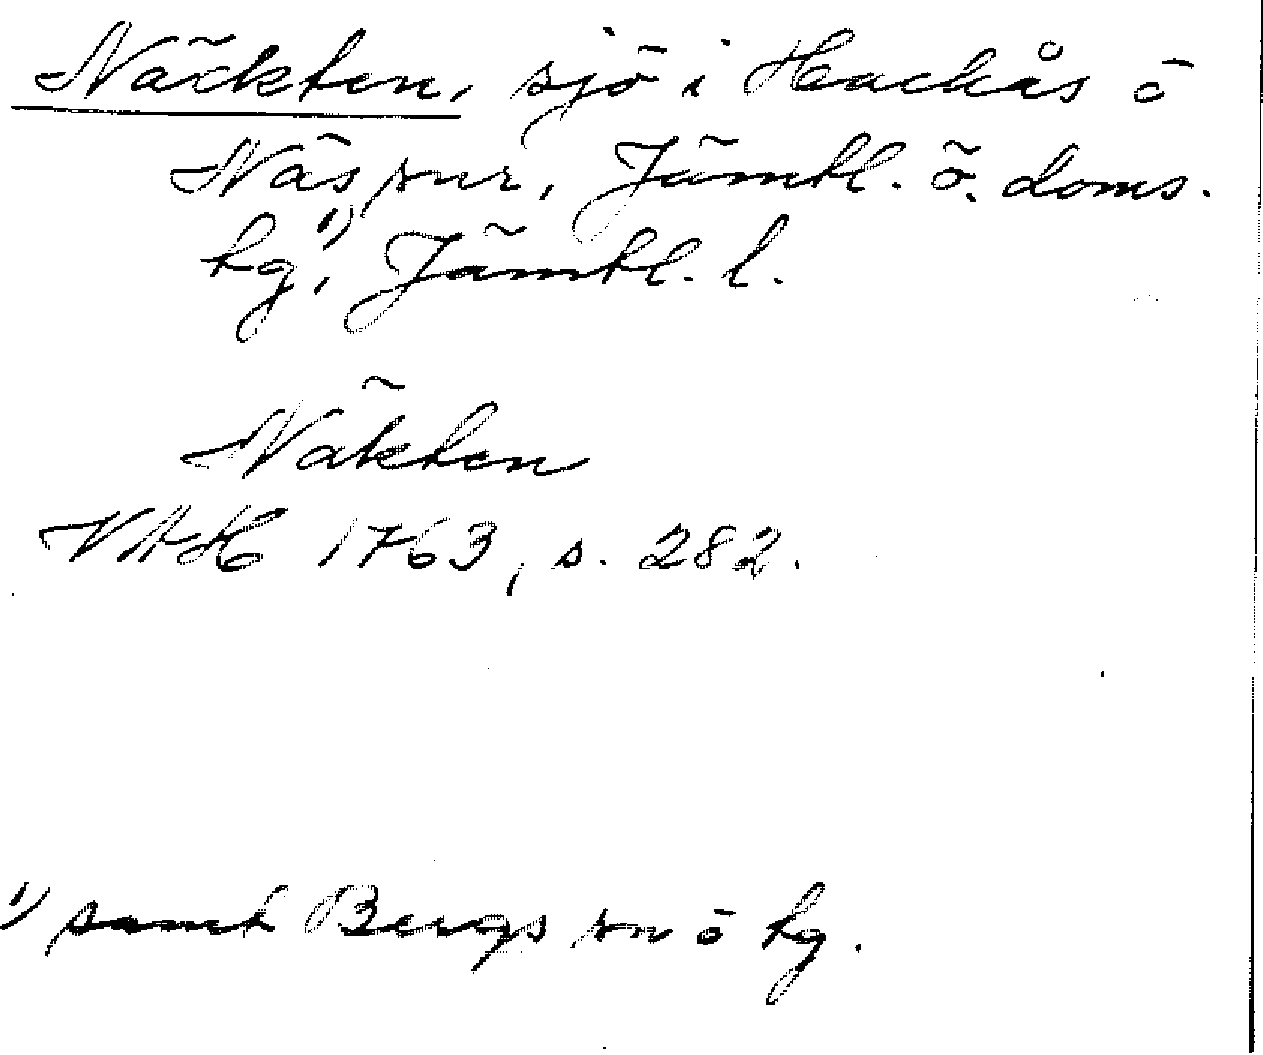 Näckten, sjö i Hackås o
Näs snr, Jämtl. ö. doms.
hg,¹⁾ Jämtl. l.
Näkten
VAH 1763, s. 282.
¹⁾ samt Bergs sn o hg.